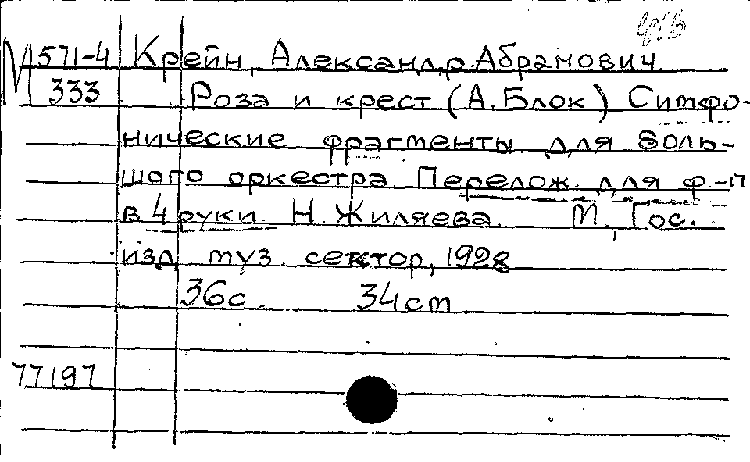 М 571-4 Крейн, Александр Абрамович
333 Роза и крест (А. Блок) Симфо-
нические фрагменты для боль-
шого оркестра Перелож. для ф-п
в 4 руки Н. Жиляева. М., Гос.
изд. муз. сектор, 1928
36с. 34см
77197